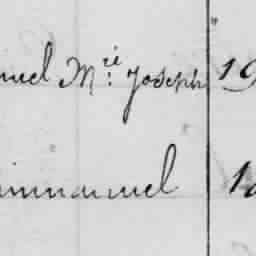 nuel M:ie Joseph 19
immanuel 1